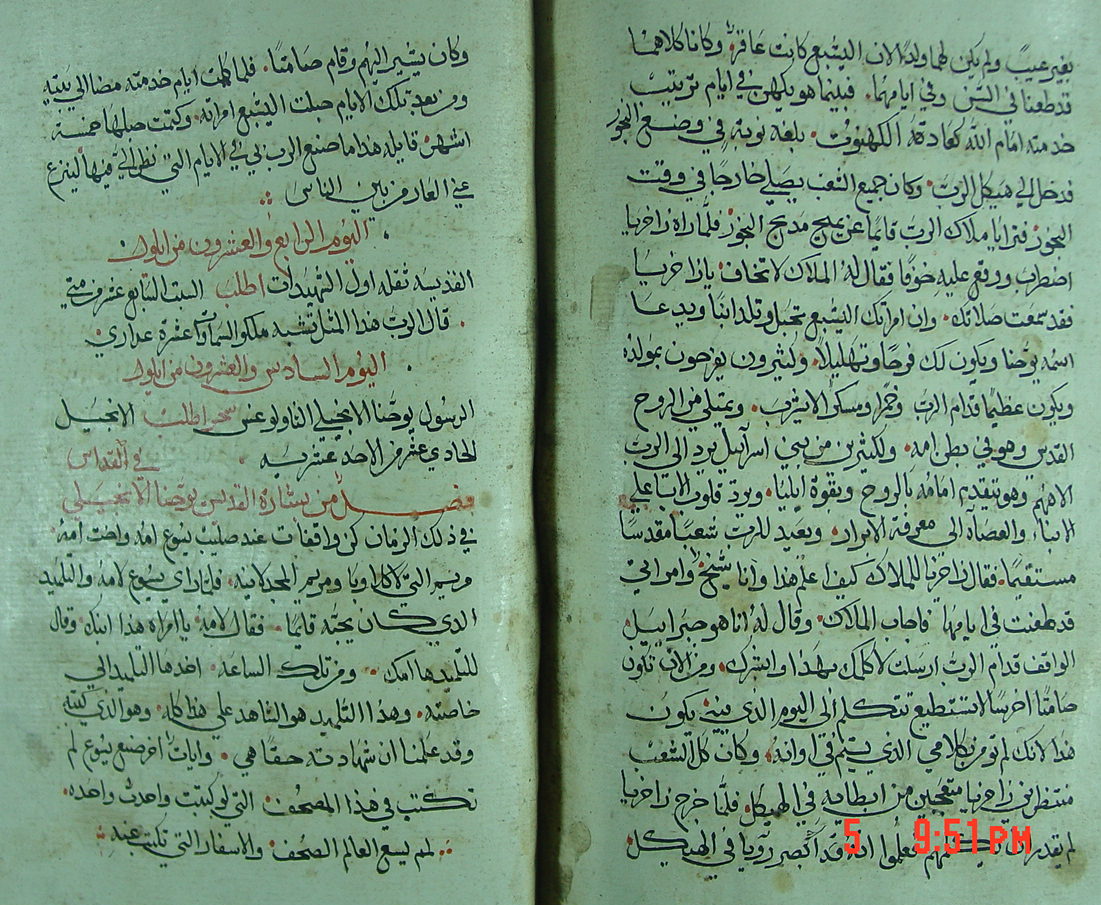 بغير عيب ولم يكن لهما ولد لان اليشبع كانت عاقرة وكانا كلاهما
قد طعنا في السن وفي ايامهما فبينما هو يكهن في ايام ترتيب
خدمته امام الله كعادة الكهنوت بلغه نوبة في وضع البخور
فدخل الي هيكل الرب وكان جميع الشعب يصلي خارجا في وقت
البخور فترايا ملاك الرب قايما عن يمين مدبح البخور فلما راه زاخريا
اضطرب ووقع عليه خوفا فقال له الملاك لا تخاف يا زاخريا
فقد سمعت صلاتك وان امراتك اليشبع تحبل وتلد ابنا ويدعا
اسمه يوحنا ويكون لك فرحا وتهليلا وكثيرون يفرحون بمولده
ويكون عظيما قدام الرب وخمرا ومسكرا لا يشرب ويمتلي من الروح
القدس وهو في بطن امه ولكثيرين من بني اسرآييل يرد الى الرب
الاههم وهو يتقدم امامه بالروح وبقوة ايليا ويرد قلوب الابا علي
الابناء والعصاه الى معرفة الابرار ويعيد للرب شعبا مقدسا
مستقيما فقال زاخريا للملاك كيف اعلم هذا وانا شيخ وامراتي
قد طعنت في ايامها فاجاب الملاك وقال له انا هو جبراييل
الواقف قدام الرب ارسلت لاكلمك بهذا وابشرك ومن الان تكون
صامتا اخرسا لا تستطيع تتكلم الى اليوم الذي فيه يكون
هذا لانك لم تومن بكلامي الذي يتم في اوانه وكان كل الشعب
منتظرين زاخريا متعجبين من ابطايه في الهيكل فلما خرج زاخريا
لم يقدر ان يكلمهم فعلموا انه قد ابصر رويا في الهيكل
وكان يشير اليهم وقام صامتا فلما كملت ايام خدمته مضا الي بيته
ومن بعد تلك الايام حبلت اليشبع امراته وكتمت حبلها خمسة
اشهر قايله هذا ما صنع الرب بي في الايام التي نظر اليّ فيها لينزع
عني العار من بين الناس
اليوم الرابع والعشرون من ايلول
القديسه تقله اول الشهيدات اطلب السبت السابع عشر من متي
قال الرب هذا المثل تشبه ملكوت السماوات عشرة عداري
اليوم السادس والعشرون من ايلول
الرسول يوحنا الانجيلي التاولوغس سحر اطلب الانجيل
الحادي عشر من الاحد عشريه في القداس
فصل من بشارة القديس يوحنا الانجيلي
في ذلك الزمان كن واقفات عند صليب يسوع امه واخت امه
مريم التي لاكلاوبا ومريم المجدلانية فلما راي يسوع لامه والتلميذ
الذي كان يحبه قايما فقال لامه يا امراه هذا ابنك وقال
للتلميد ها امك ومن تلك الساعة اخدها التلميد الي
خاصته وهذا التلميد هو الشاهد علي هذا كله وهو الذي كتبه
وقد علمنا ان شهادته حقا هي وايات اخر صنع يسوع لم
تكتب في هذا المصحف التي لو كتبت واحدة واحده
لم يسع العالم الصحف والاسفار التي تكتب عنه
5 9:51PM